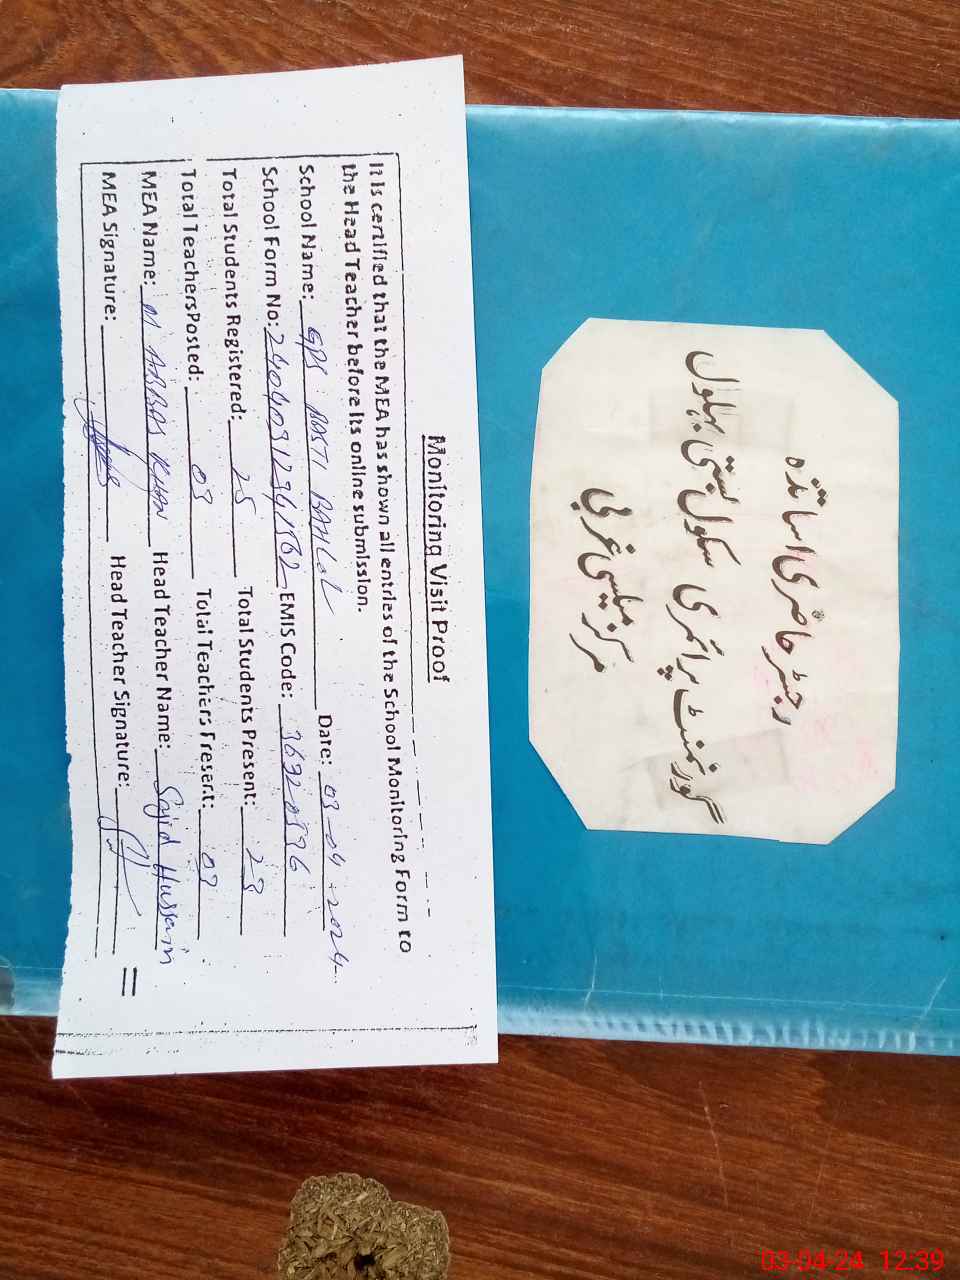 رجسٹر حاضری اساتذہ
گورنمنٹ پرائمری سکول بستی بہلول
مرکز میلسی غربی
Monitoring Visit Proof
It is certified that the MEA has shown all entries of the School Monitoring Form to
the Head Teacher before its online submission.
School Name: GPS BASTI BAHLOL Date: 03-04-2024
School Form No: EMIS Code:
Total Students Registered: 25 Total Students Present: 23
Total Teachers Posted: 03 Total Teachers Present: 03
MEA Name: M ABBAS KHAN Head Teacher Name: Sajid Hussain
MEA Signature: Head Teacher Signature:
03-04-24 12:39